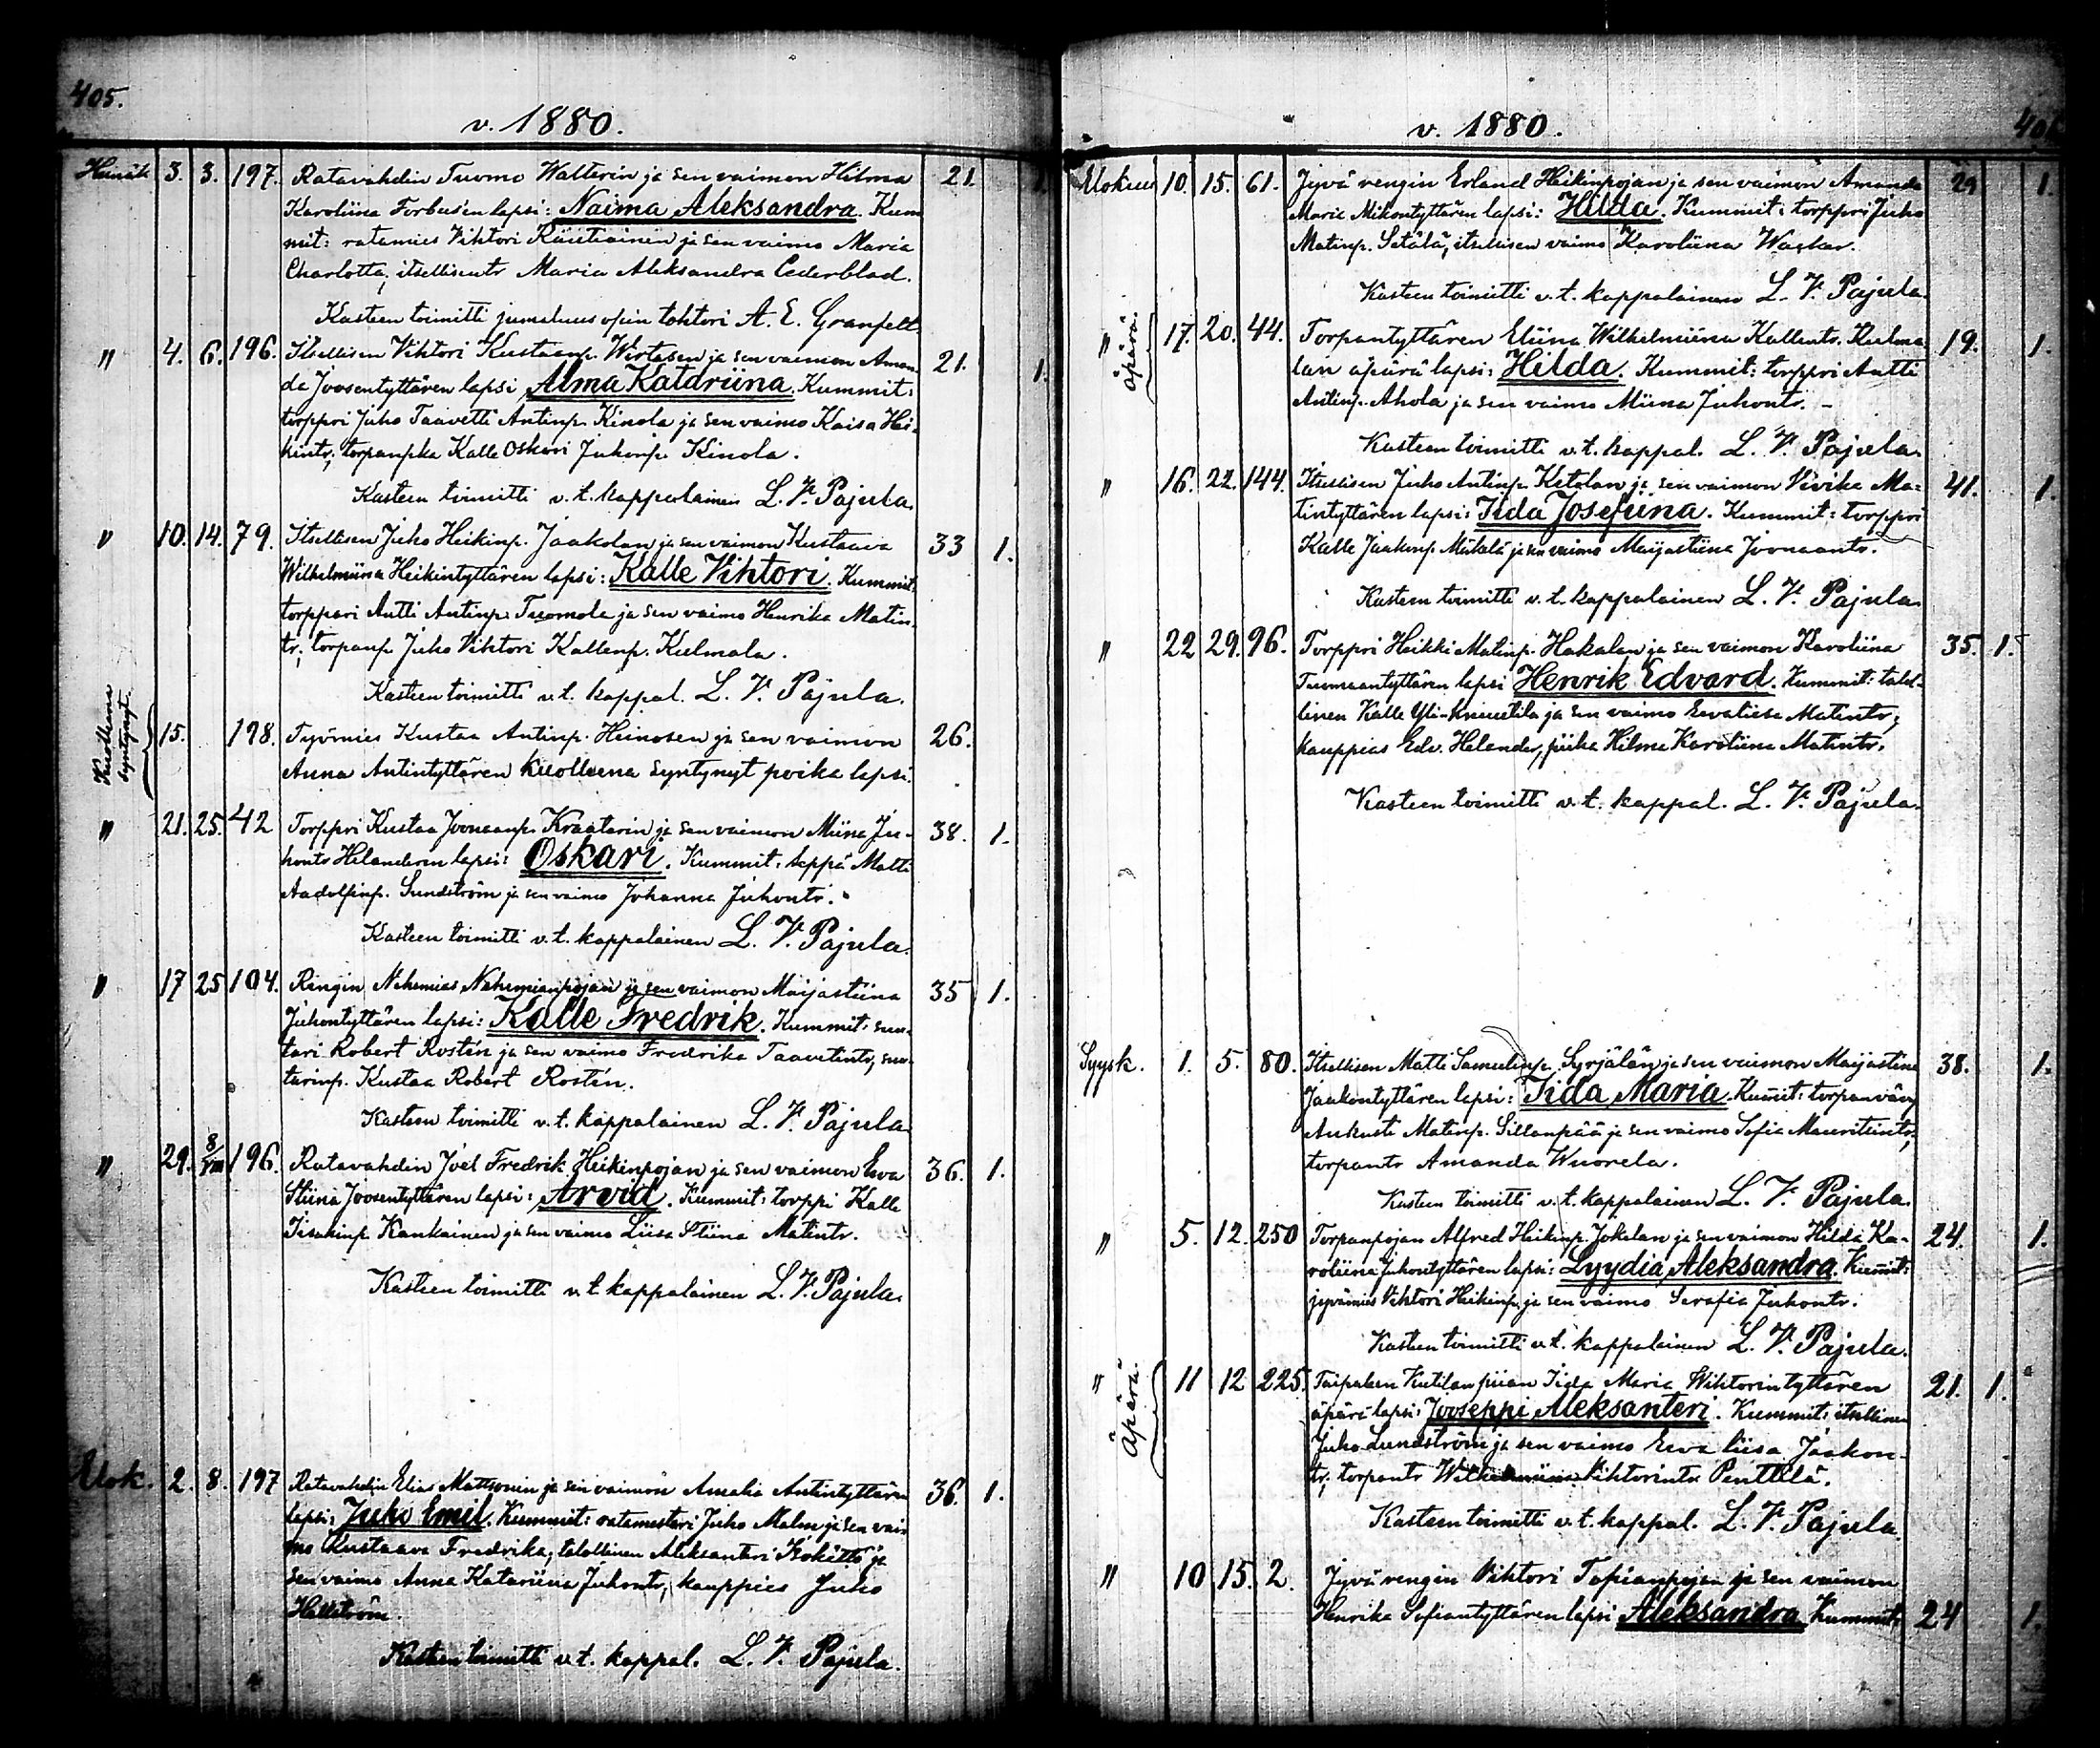 405.
v. 1880.
Heinäk. 3. 3. 197. Ratavahdin Tuomo Walterin ja sen vaimon Hilma 21. 1.
Karoliina Forbusen lapsi: Naima Aleksandra. Kum
mit: ratamies Vihtori Räietiäinen ja sen vaimo Maria
Charlotta, itsellisentr Maria Aleksandra Cederblad.
Kasteen toimitti jumaluus opin tohtori A. E. Granfelt
" 4. 6. 196. Itsellisen Vihtori Kustaanp. Wirtasen ja sen vaimon Aman- 21. 1.
da Joosentyttären lapsi, Alma Katdriina. Kummit:
torppri Juho Taavetti Antinp. Kinola ja sen vaimo Kaisa Hei-
kintr, torpanpka Kalle Oskari Juhonp. Kinola.
Kasteen toimitti v. t. kappalainen L. V. Pajula.
" 10. 14. 79. Itsellisen Juho Heikinp. Jaakolan ja sen vaimon Kustaava 33 1.
Wilhelmiina Heikintyttären lapsi: Kalle Vihtori. Kummit:
torppari Antti Antinp. Tuomola ja sen vaimo Henrika Matin
tr, torpanp Juho Vihtori Kallenp. Kulmala.
Kasteen toimitti v. t. kappal. L. V. Pajula.
Kuolleena syntynyt.
15. 198. Työmies Kustaa Antinp. Heinosen ja sen vaimon 26.
Anna Antintyttären kuolleena syntynyt poika lapsi.
" 21. 25. 42 Torppri Kustaa Joonaanp. Kraatarin ja sen vaimon Miina Ju- 38. 1.
hontr Helanderin lapsi: Oskari. Kummit: seppä Matti
Aadolfinp. Sundström ja sen vaimo Johanna Juhontr.
Kasteen toimitti v. t. kappalainen L. V. Pajula.
" 17 25 104. Rengin Nehemias Nehemianpojan ja sen vaimon Maijastiina 35 1.
Juhontyttären lapsi: Kalle Fredrik. Kummit: sun-
tari Robert Rostén ja sen vaimo Fredrika Taavetintr, sun-
tarinp. Kustaa Robert Rostén.
Kasteen toimitti v. t. kappalainen L. V. Pajula
" 29. 8/VIII 196. Ratavahdin Joel Fredrik Heikinpojan ja sen vaimon Eeva 36. 1.
Stiina Joosentyttären lapsi: Arvid. Kummit: torppi Kalle
Iisakinp. Kankainen ja sen vaimo Liisa Stiina Matintr.
Kasteen toimitti v. t. kappalainen L. V. Pajula.
Elok. 2. 8. 197 Ratavahdin Elias Mattsonin ja sen vaimon Amalia Antintyttären 36. 1.
lapsi: Juho Emil. Kummit: ratamestari Juho Malm ja sen vai-
mo Kustaava Fredrika, talollinen Aleksanteri Isokättö ja
sen vaimo Anna Katariina Juhontr, kauppies Juho
Hellström.
Kasteen toimitti v. t. kappal. L. V. Pajula.
v. 1880.
Elokuu 10. 15. 61. Jyvä rengin Erland Heikinpojan ja sen vaimon Amanda 29 1.
Maria Mikontyttären lapsi: Hilda. Kummit: torppri Juho
Matinp. Setälä, itsellisen vaimo Karoliina Waskar.
Kasteen toimitti v. t. kappalainen L. V. Pajula.
" Äpärä. 17. 20. 44. Torpantyttären Eliina Wilhelmiina Kallentr. Kulma 19. 1.
lan äpärä lapsi: Hilda. Kummit: torppri Antti
Antinp. Ahola ja sen vaimo Miina Juhontr. –
Kasteen toimitti v. t. kappal. L. V. Pajula.
" 16. 22. 144. Itsellisen Juho Antinp. Ketolan ja sen vaimon Vivika Ma- 41. 1.
tintyttären lapsi: Iida Josefiina. Kummit: torppri
Kalle Jaakonp. Mäkelä ja sen vaimo Maijastiina Joonaantr.
Kasteen toimitti v. t. kappalainen L. V. Pajula.
" 22 29. 96. Torppri Heikki Matinp. Hakalan ja sen vaimon Karoliina 35. 1.
Tuomaantyttären lapsi Henrik Edvard. Kummit: talol-
linen Kalle Yli-Knuutila ja sen vaimo Eevaliisa Matintr,
kauppias Edv. Helander, piika Hilma Karoliina Matintr.
Kasteen toimitti v. t. kappal. L. V. Pajula.
Syysk. 1. 5. 80. Itsellisen Matti Samulinp. Syrjälän ja sen vaimon Maijastina 38. 1.
Jaakontyttären lapsi: Iida Maria. Kum̄it: torpan vävy
Aukusti Matinp. Sillanpää ja sen vaimo Sofia Mauritsintr,
torpantr Amanda Wuorela.
Kasteen toimitti v. t. kappalainen L. V. Pajula.
" 5. 12. 250 Torpanpojan Alfred Heikinp. Jokelan ja sen vaimon Hilda Ka- 24. 1.
roliina Juhontyttären lapsi: Lyydia Aleksandra. Kum̄it:
jyvämies Vihtori Heikinp. ja sen vaimo Serafia Juhontr.
Kasteen toimitti v. t. kappalainen L. V. Pajula.
" Äpärä. 11 12 225. Taipaleen Kutilan piian Iida Maria Wihtorintyttären 21. 1.
äpärä lapsi: Jooseppi Aleksanteri. Kummit: itsellinen
Juho Lundström ja sen vaimo Eeva liisa Jaakon-
tr, torpantr Wilhelmiina Vihtorintr Penttilä.
Kasteen toimitti v. t. kappal. L. V. Pajula.
" 10 15. 2. Jyvä rengin Vihtori Tapianpojan ja sen vaimon
Henrika Sofiantyttären lapsi Aleksandra Kummit: 24 1.